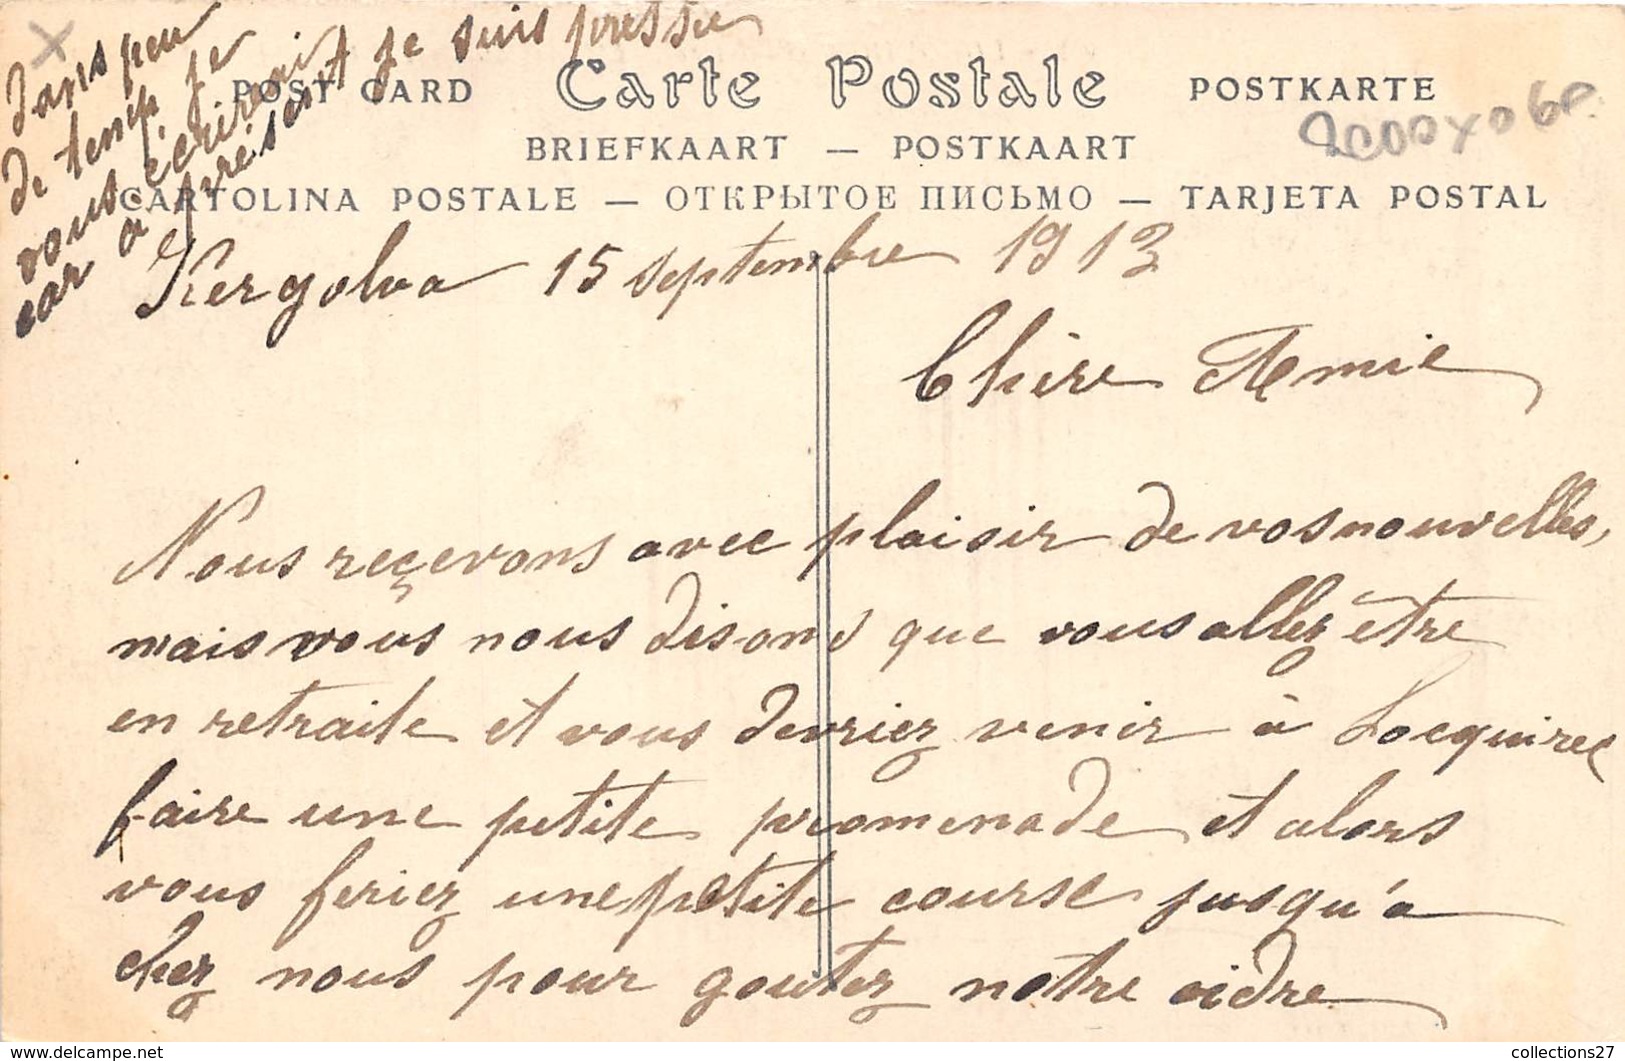 dans peu
de temp je
vous écrirait
car à présent je suis pressée
POST CARD Carte Postale POSTKARTE
BRIEFKAART — POSTKAART
CARTOLINA POSTALE — ОТКРЫТОЕ ПИСЬМО — TARJETA POSTAL
Kergolva 15 septembre 1913
Chère Amie
Nous reçevons avec plaisir de vos nouvelles,
mais vous nous disons que vous allez être
en retraite et vous devriez venir à Locquirec
faire une petite promenade et alors
vous feriez une petite course jusqu'à
chez nous pour goutez notre cidre
collections27